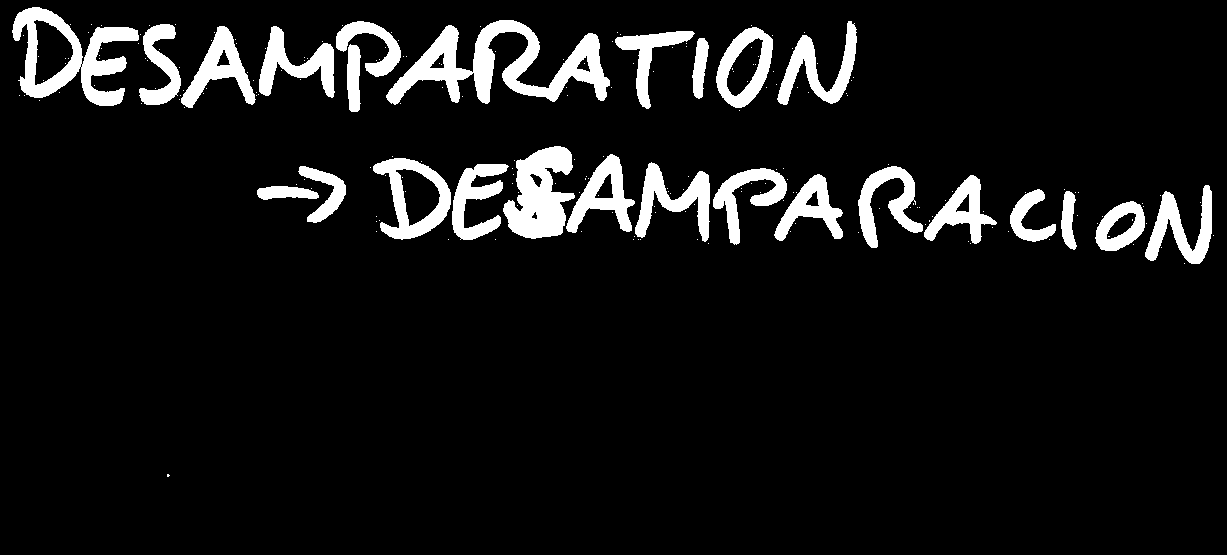 DESAMPARATION
→ DESAMPARACION